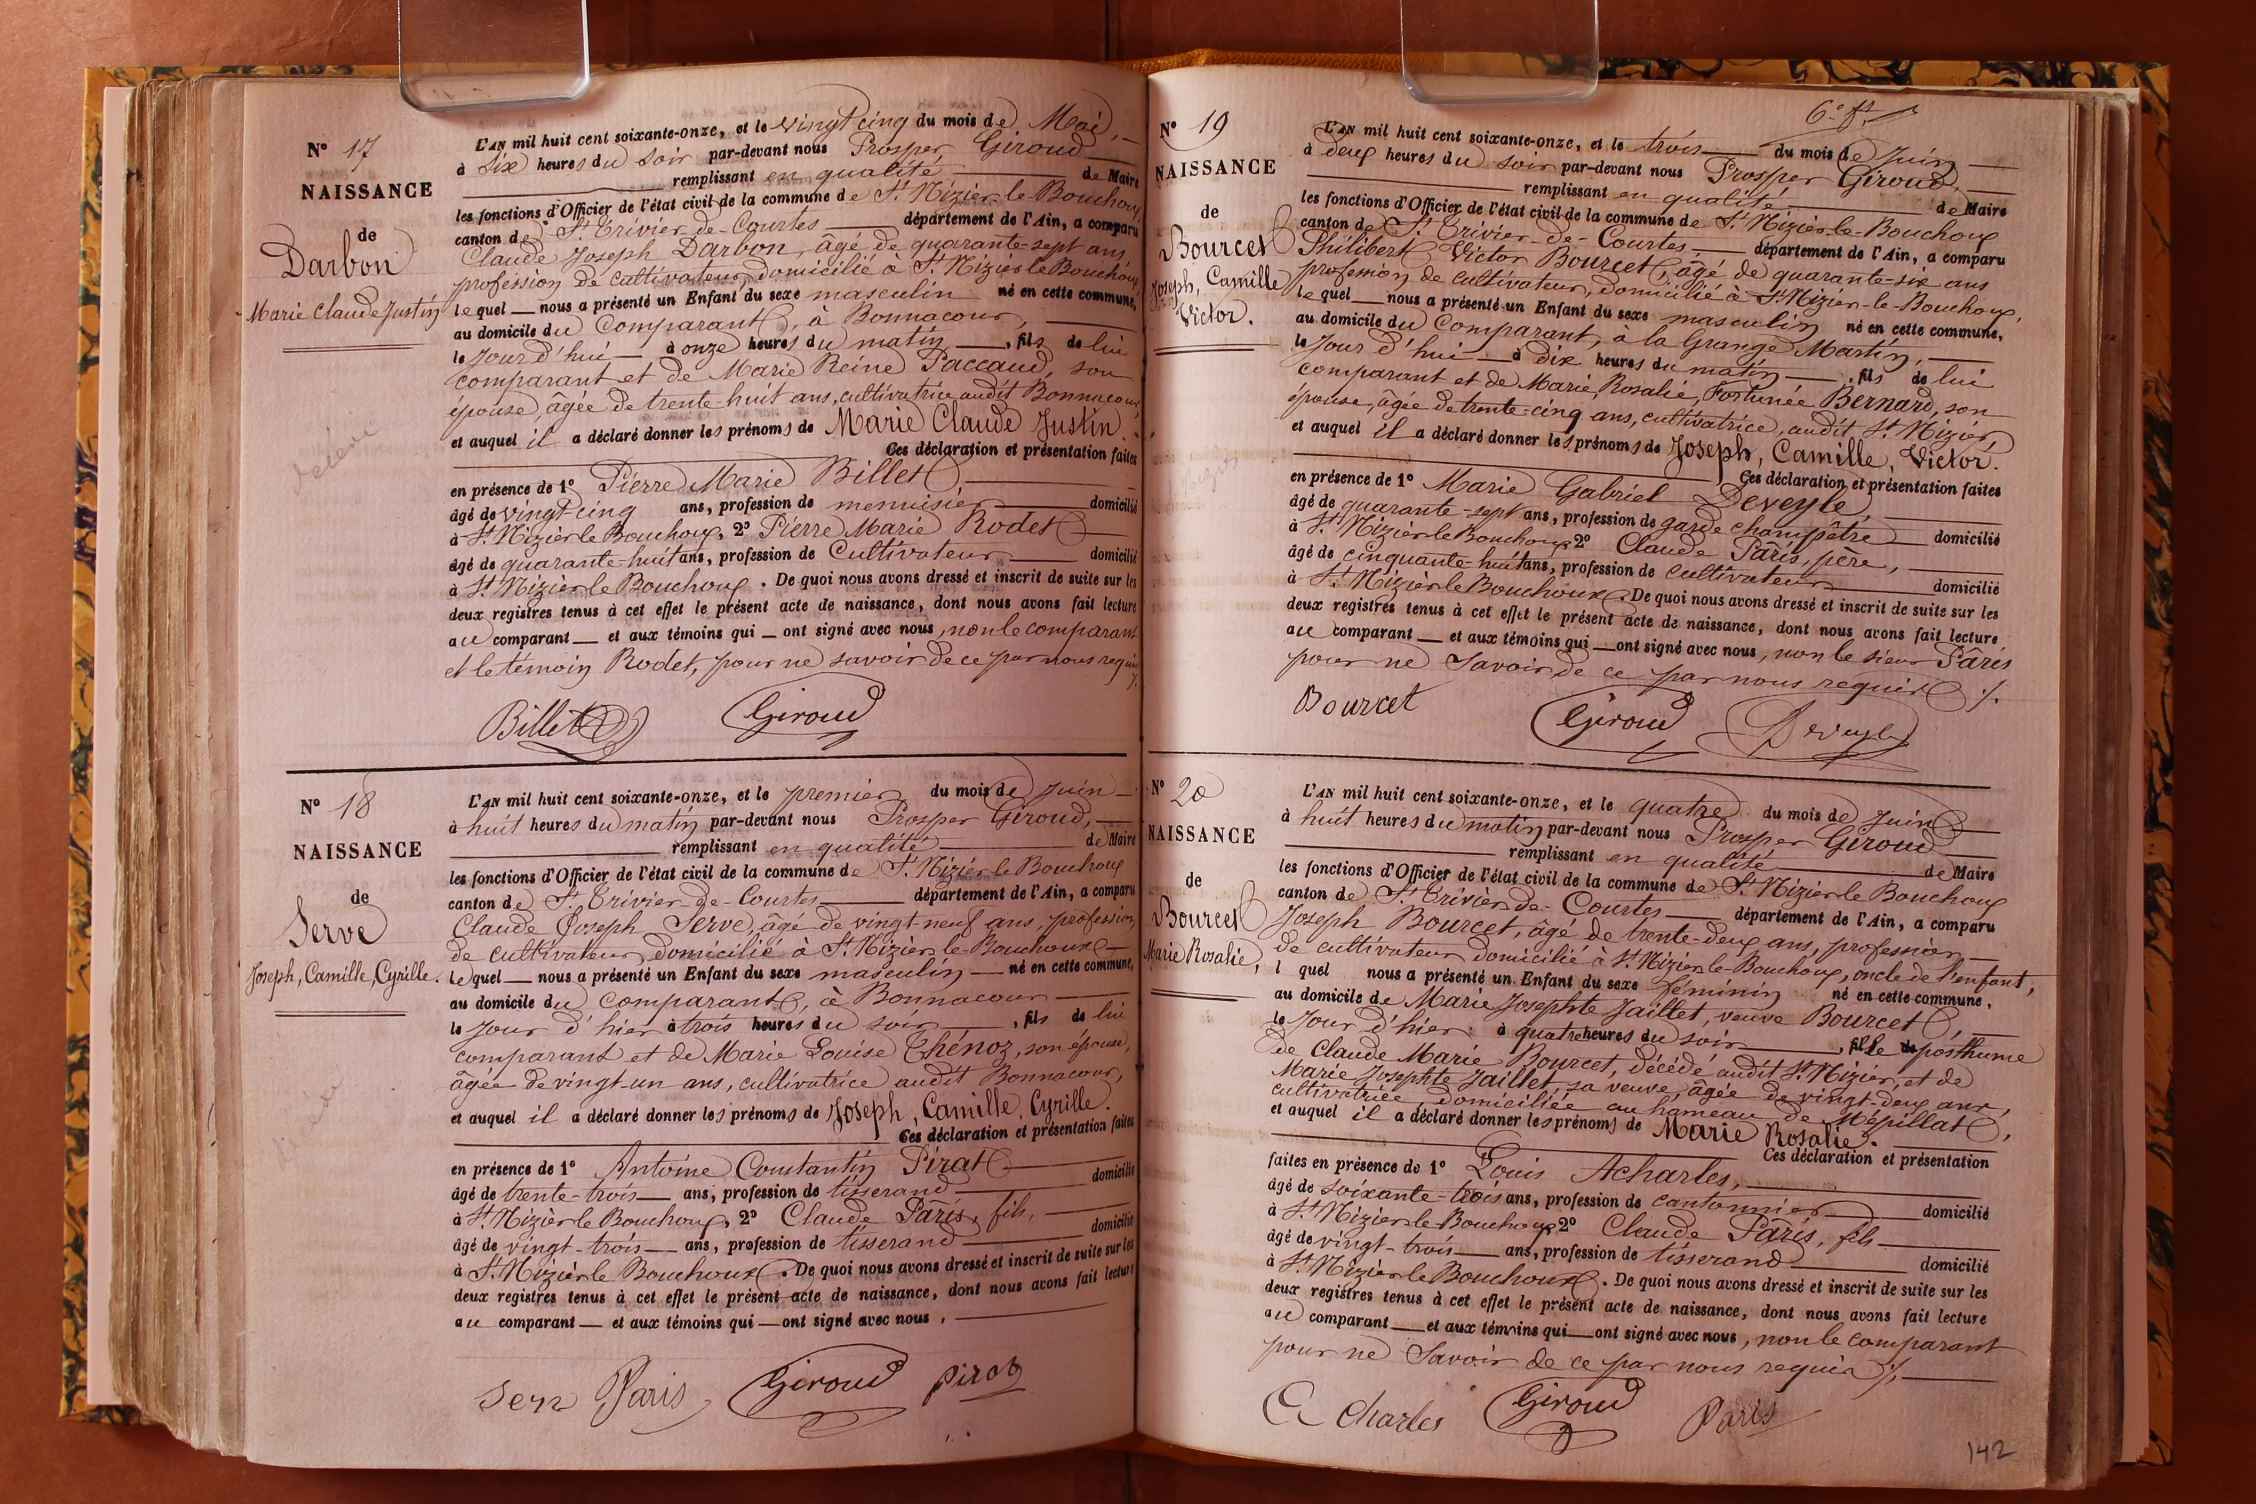 N° 17
NAISSANCE
de
Darbon
Marie Claude Justin
L'AN mil huit cent soixante-onze, et le vingt cinq du mois de Mai,
à six heures du soir par-devant nous Prosper Giroud
remplissant en qualité de Maire
les fonctions d'Officier de l'état civil de la commune de St Nizier le Bouchoux,
canton de St Trivier-de-Courtes département de l'Ain, a comparu
Claude Joseph Darbon, âgé de quarante-sept ans,
profession de cultivateur, domicilié à St Nizier le Bouchoux,
lequel nous a présenté un Enfant du sexe masculin né en cette commune,
au domicile du Comparant, à Bonnacour,
le Jour d'hui, à onze heures du matin, fils de lui
comparant et de Marie Reine Paccaud, son
épouse, âgée de trente-huit ans, cultivatrice audit Bonnacour,
et auquel il a déclaré donner les prénoms de Marie Claude Justin.
Ces déclaration et présentation faites
en présence de 1° Pierre Marie Billet
âgé de vingt-cinq ans, profession de menuisier domicilié
à St Nizier le Bouchoux, 2° Pierre Marie Rodet
âgé de quarante-huit ans, profession de Cultivateur domicilié
à St Nizier le Bouchoux. De quoi nous avons dressé et inscrit de suite sur les
deux registres tenus à cet effet le présent acte de naissance, dont nous avons fait lecture
au comparant et aux témoins qui ont signé avec nous, non le comparant
et le témoin Rodet, pour ne savoir de ce par nous requis
Billet Giroud
N° 18
NAISSANCE
de
Serve
Joseph, Camille, Cyrille.
L'AN mil huit cent soixante-onze, et le premier du mois de Juin
à huit heures du matin par-devant nous Prosper Giroud,
remplissant en qualité de Maire
les fonctions d'Officier de l'état civil de la commune de St Nizier le Bouchoux
canton de St Trivier-de-Courtes département de l'Ain, a comparu
Claude Joseph Serve, âgé de vingt-neuf ans, profession
de cultivateur, domicilié à St Nizier le Bouchoux
lequel nous a présenté un Enfant du sexe masculin né en cette commune,
au domicile du Comparant, à Bonnacour
le Jour d'hier à trois heures du soir, fils de lui
comparant et de Marie Louise Thénoz, son épouse,
âgée de vingt-un ans, cultivatrice audit Bonnacour,
et auquel il a déclaré donner les prénoms de Joseph, Camille, Cyrille.
Ces déclaration et présentation faites
en présence de 1° Antoine Constantin Pirat
âgé de trente-trois ans, profession de tisserand domicilié
à St Nizier le Bouchoux, 2° Claude Pâris, fils,
âgé de vingt-trois ans, profession de tisserand domicilié
à St Nizier le Bouchoux. De quoi nous avons dressé et inscrit de suite sur les
deux registres tenus à cet effet le présent acte de naissance, dont nous avons fait lecture
au comparant et aux témoins qui ont signé avec nous,
Paris Giroud Pirat
6e ft
N° 19
NAISSANCE
de
Bourcet
Joseph, Camille
Victor.
L'AN mil huit cent soixante-onze, et le trois du mois de Juin
à deux heures du soir par-devant nous Prosper Giroud,
remplissant en qualité de Maire
les fonctions d'Officier de l'état civil de la commune de St Nizier-le-Bouchoux
canton de St Trivier-de-Courtes, département de l'Ain, a comparu
Philibert Victor Bourcet, âgé de quarante-six ans
profession de cultivateur, domicilié à St Nizier-le-Bouchoux,
lequel nous a présenté un Enfant du sexe masculin né en cette commune,
au domicile du Comparant, à la Grange Martin,
le Jour d'hui à dix heures du matin, fils de lui
comparant et de Marie, Rosalie, Fortunée Bernard, son
épouse, âgée de trente-cinq ans, cultivatrice, audit St Nizier,
et auquel il a déclaré donner les prénoms de Joseph, Camille, Victor.
Ces déclaration et présentation faites
en présence de 1° Marie Gabriel Deveyle,
âgé de quarante-sept ans, profession de garde champêtre domicilié
à St Nizier le Bouchoux 2° Claude Pâris, père,
âgé de cinquante-huit ans, profession de cultivateur domicilié
à St Nizier le Bouchoux. De quoi nous avons dressé et inscrit de suite sur les
deux registres tenus à cet effet le présent acte de naissance, dont nous avons fait lecture
au comparant et aux témoins qui ont signé avec nous, non le sieur Pâris
pour ne savoir de ce par nous requis ./.
Bourcet Giroud Deveyle
N° 20
NAISSANCE
de
Bourcet
Marie Rosalie,
L'AN mil huit cent soixante-onze, et le quatre du mois de Juin
à huit heures du matin par-devant nous Prosper Giroud
remplissant en qualité de Maire
les fonctions d'Officier de l'état civil de la commune de St Nizier le Bouchoux
canton de St Trivier-de-Courtes département de l'Ain, a comparu
Joseph Bourcet, âgé de trente-deux ans, profession
de cultivateur domicilié à St Nizier-le-Bouchoux, oncle de l'enfant,
l quel nous a présenté un Enfant du sexe féminin né en cette commune,
au domicile de Marie Josephte Jaillet, veuve Bourcet,
le Jour d'hier à quatre heures du soir, fille posthume
de Claude Marie Bourcet, décédé audit St Nizier, et de
Marie Josephte Jaillet, sa veuve, âgée de vingt-deux ans,
cultivatrice, domiciliée au hameau de Mépillat,
et auquel il a déclaré donner les prénoms de Marie Rosalie.
Ces déclaration et présentation
faites en présence de 1° Louis Acharles,
âgé de soixante-trois ans, profession de cantonnier domicilié
à St Nizier le Bouchoux 2° Claude Pâris, fils
âgé de vingt-trois ans, profession de tisserand domicilié
à St Nizier le Bouchoux. De quoi nous avons dressé et inscrit de suite sur les
deux registres tenus à cet effet le présent acte de naissance, dont nous avons fait lecture
au comparant et aux témoins qui ont signé avec nous, non le comparant
pour ne savoir de ce par nous requis ./.
A charles Giroud Paris
142